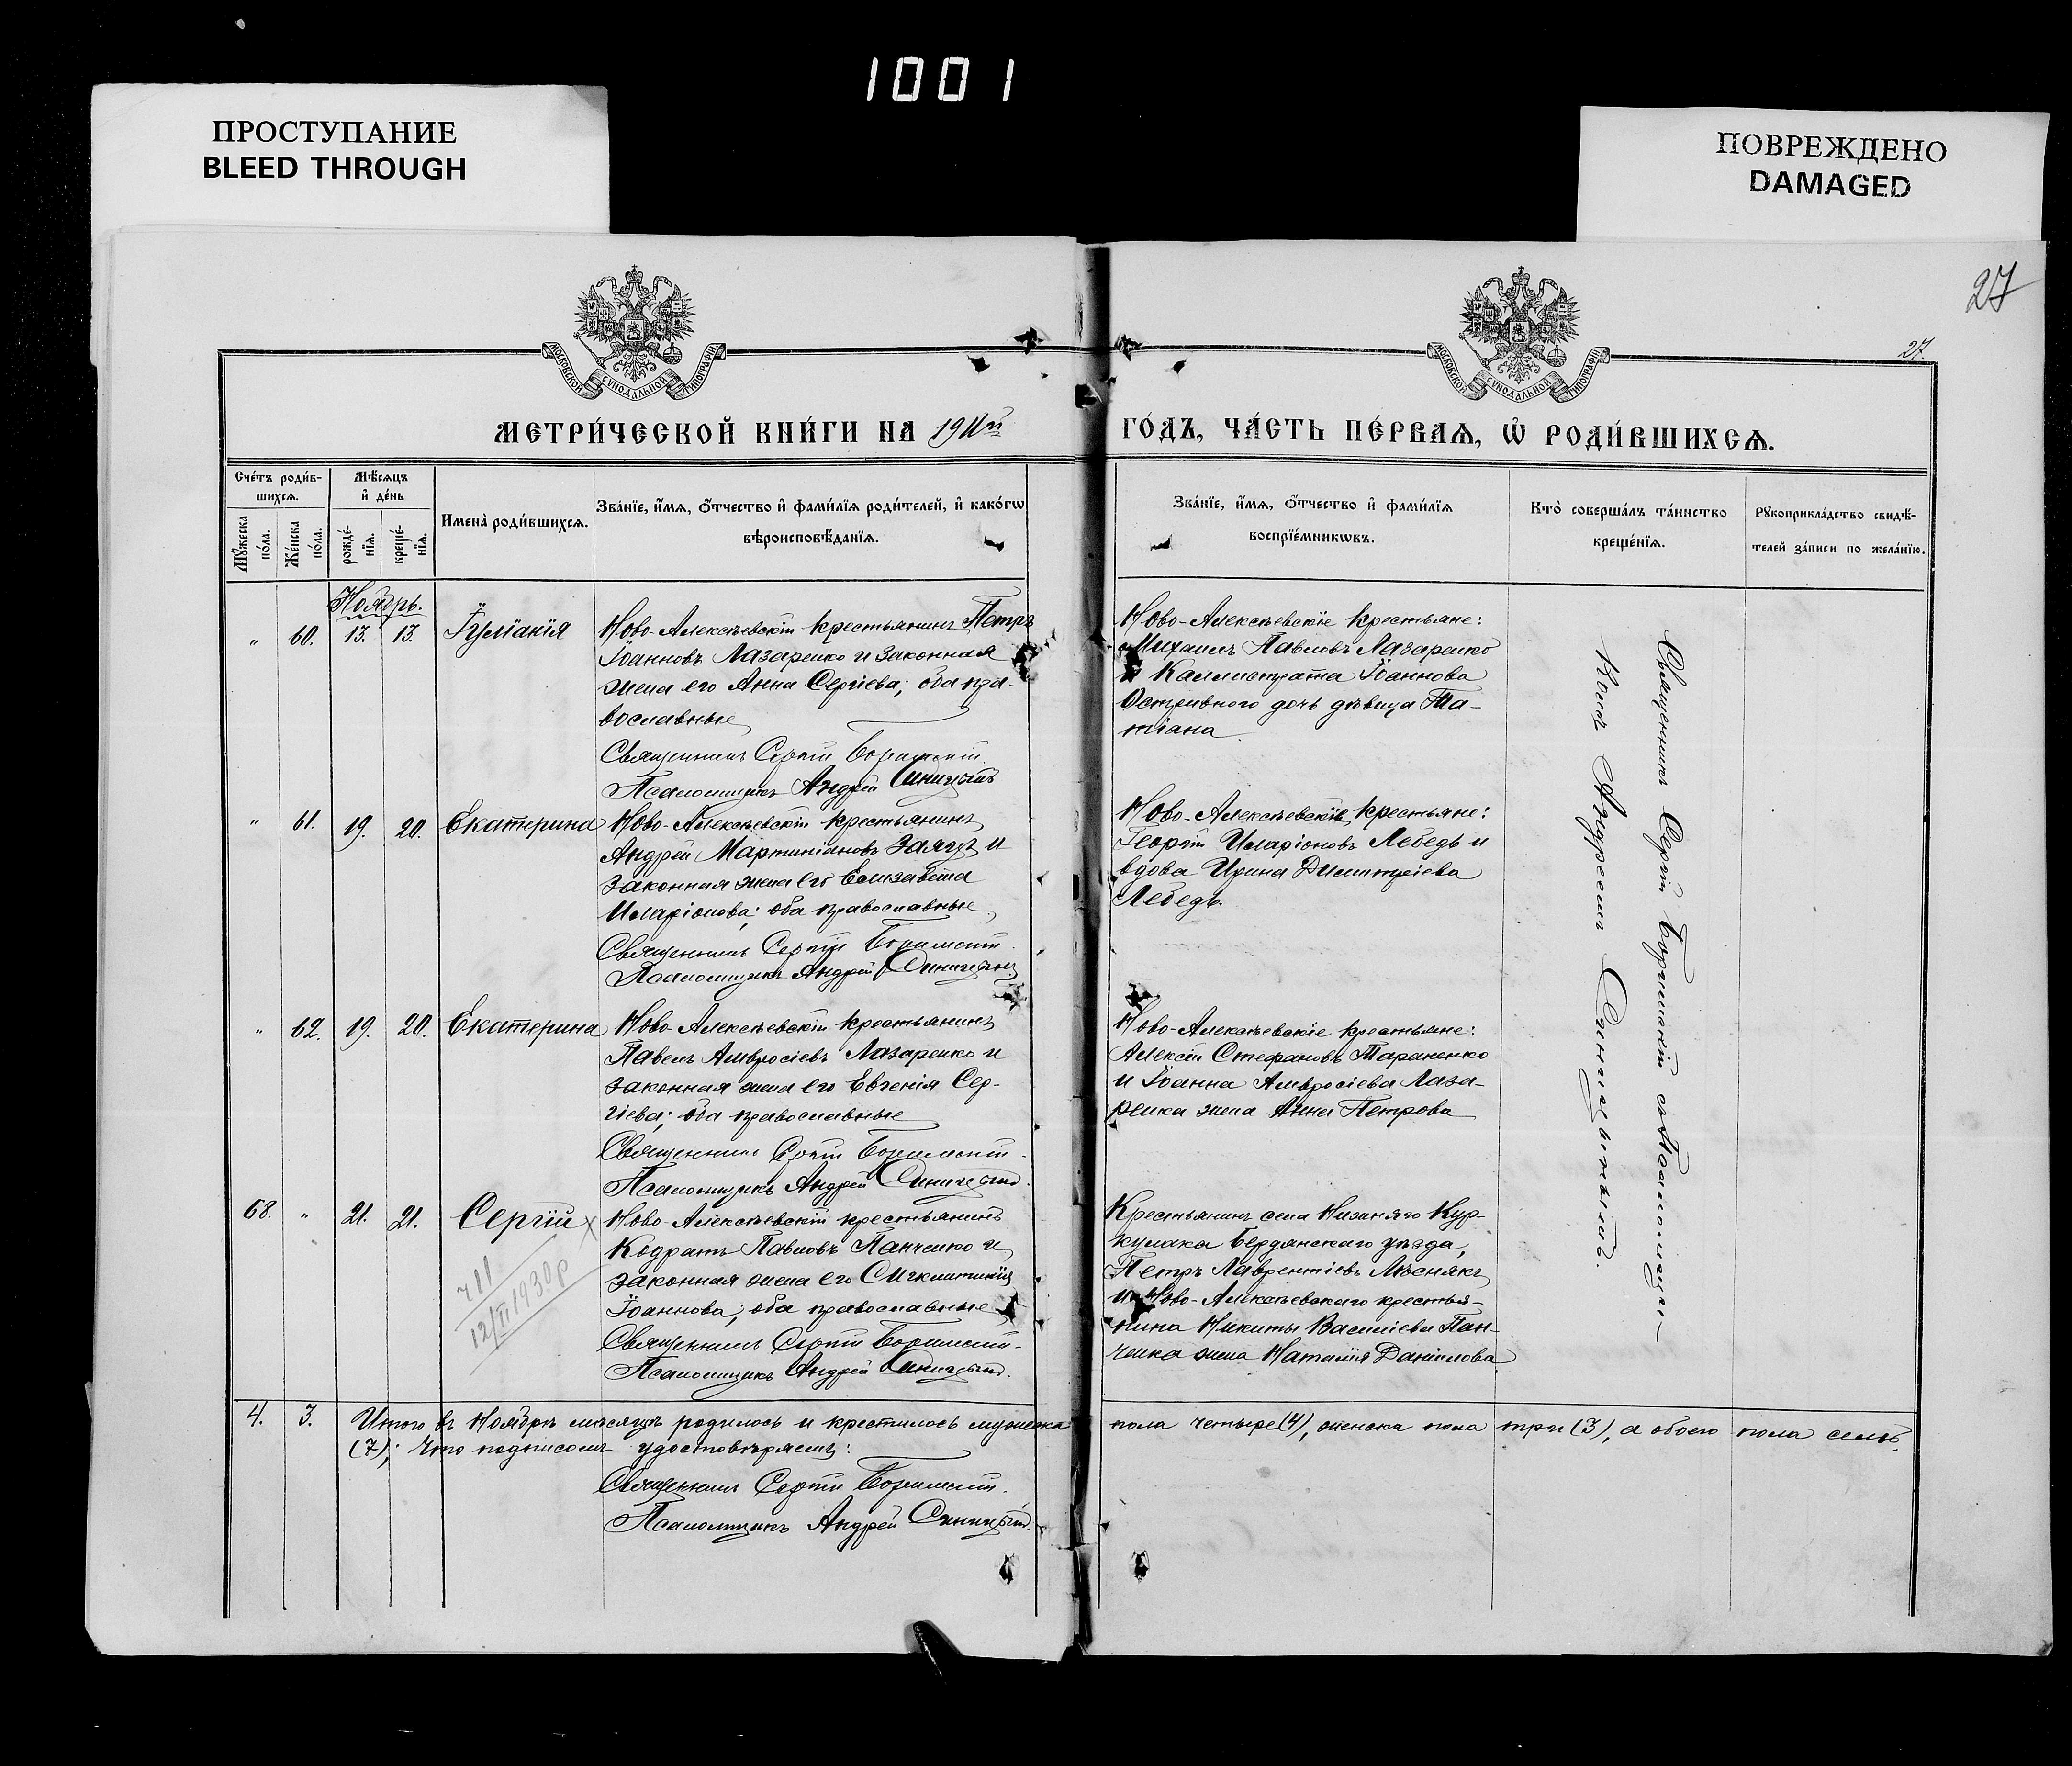 1001
ПРОСТУПАНИЕ
BLEED THROUGH
ПОВРЕЖДЕНО
DAMAGED
27
27.
МОСКОВСКОЙ СУНОДАЛЬНОЙ ТИПОГРАФІИ
МОСКОВСКОЙ СУНОДАЛЬНОЙ ТИПОГРАФІИ
МЕТРИ́ЧЕСКОЙ КНИ́ГИ НА 1911й ГО́ДЪ, ЧА́СТЬ ПЕ́РВАѦ, Ѡ҆ РОДИ́ВШИХСѦ.
Сче́тъ роди́в-
шихсѧ.
Мꙋ́жеска
по́ла.
Же́нска
по́ла.
Мѣ́сѧцъ
и҆ де́нь
рожде́-
нїѧ.
креще́-
нїѧ.
И҆мена̀ роди́вшихсѧ.
Зва́нїе, и҆́мѧ, ѻ҆́тчество и҆ фами́лїѧ роди́телей, и҆ како́гѡ
вѣроисповѣ́данїѧ.
Зва́нїе, и҆́мѧ, ѻ҆́тчество и҆ фами́лїѧ
воспрїе́мникѡвъ.
Кто̀ соверша́лъ та́инство
креще́нїѧ.
Рꙋкоприкла́дство свидѣ́-
телей за́писи по жела́нїю.
Ноябрь.
" 60. 13. 13. Іуліанія
Ново-Алексѣевскій крестьянинъ Петръ
Іоанновъ Лазаренко и законная
жена его Анна Сергіева; оба пра-
вославные
Священникъ Сергій
Псаломщикъ Андрей Синицынъ
Ново-Алексѣевскіе крестьяне:
Михаилъ Павловъ Лазаренко
и Каллистрата Іоаннова
Остривного дочь дѣвица Та-
тіана.
" 61. 19. 20. Екатерина
Ново-Алексѣевскій крестьянинъ
Андрей Мартиніановъ Заяцъ и
законная жена его Елизавета
Иларіонова; оба православные
Священникъ Сергій
Псаломщикъ Андрей Синицынъ
Ново-Алексѣевскіе крестьяне:
Георгій Иларіоновъ Лебедь и
вдова Ирина Димитріева
Лебедь.
" 62. 19. 20. Екатерина
Ново-Алексѣевскій крестьянинъ
Павелъ Амвросіевъ Лазаренко и
законная жена его Евгенія Сер-
гіева; оба православные
Священникъ Сергій
Псаломщикъ Андрей Синицынъ.
Ново-Алексѣевскіе крестьяне:
Алексій Стефановъ Тараненко
и Іоанна Амвросіева Лаза-
ренка жена Анна Петрова
68. " 21. 21. Сергій
Ново-Алексѣевскій крестьянинъ
Кодратъ Павловъ Панченко и
законная жена его
Іоаннова; оба православные
Священникъ Сергій
Псаломщикъ Андрей Синицынъ.
12/II 1930 р
Крестьянинъ села Нижняго Кур-
кулака Бердянскаго уѣзда,
Петръ Лаврентіевъ Лѣснякъ
и Ново-Алексѣевскаго крестья-
нина Никиты Василіева Пан-
ченка жена Наталія Даніилова
Священникъ Сергій съ Псаломщи-
комъ Андреемъ Синицынымъ.
4. 3. Итого въ Ноябрѣ мѣсяцѣ родилось и крестилось мужеска пола четыре (4), женска пола три (3), а обоего пола семь
(7); что подписомъ удостовѣряемъ:
Священникъ Сергій
Псаломщикъ Андрей Синицынъ.